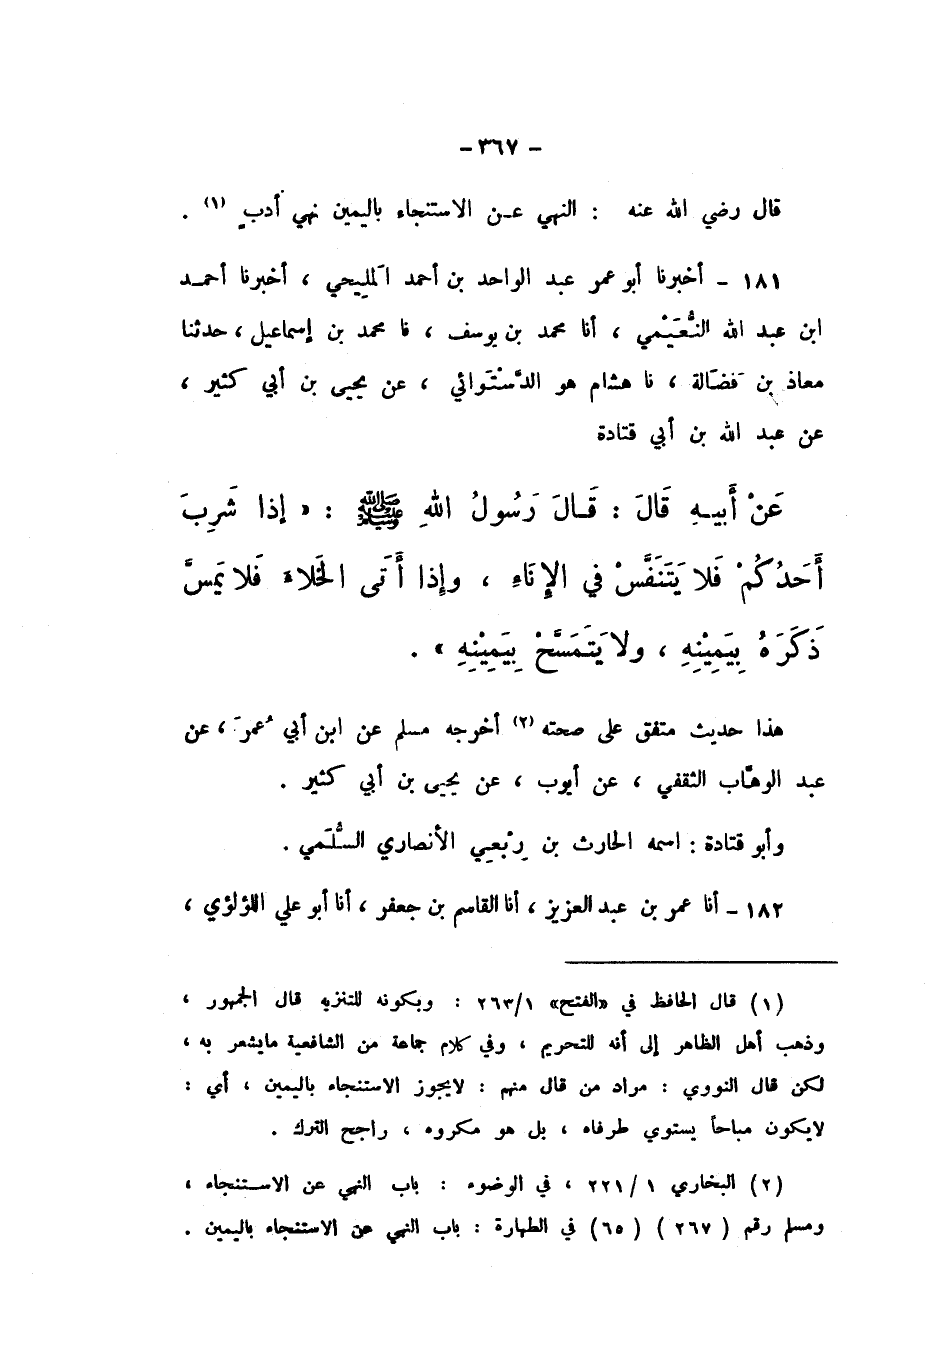 - ٣٦٧ -
قال رضي الله عنه : النهي عن الاستنجاء باليمين نهي أدبٍ (١) .
١٨١ - أخبرنا أبو عمر عبد الواحد بن أحمد المَلِيحي ، أخبرنا أحمد
ابن عبد الله النُّعَيْمي ، أنا محمد بن يوسف ، نا محمد بن إسماعيل ، حدثنا
معاذ بن فَضَالة ، نا هشام هو الدَّسْتَوائي ، عن يحيى بن أبي كثير ،
عن عبد الله بن أبي قتادة
عَنْ أَبيهِ قَالَ : قَالَ رَسُولُ اللهِ ﷺ : « إذا شَرِبَ
أَحَدُكُمْ فَلا يَتَنَفَّسْ في الإِنَاءِ ، وإِذا أَتَى الخَلاءَ فَلا يَمَسَّ
ذَكَرَهُ بِيَمِيْنِهِ ، ولا يَتَمَسَّحْ بِيَمِيْنِهِ » .
هذا حديث متفق على صحته (٢) أخرجه مسلم عن ابن أبي عُمرَ ، عن
عبد الوهَّاب الثقفي ، عن أيوب ، عن يحيى بن أبي كثير .
وأبو قتادة : اسمه الحارث بن رِبْعِي الأنصاري السُّلَمي .
١٨٢ - أنا عمر بن عبد العزيز ، أنا القاسم بن جعفر ، أنا أبو علي اللؤلؤي ،
(١) قال الحافظ في «الفتح» ٢٦٣/١ : وبكونه للتنزيه قال الجمهور ،
وذهب أهل الظاهر إلى أنه للتحريم ، وفي كلام جماعة من الشافعية مايشعر به ،
لكن قال النووي : مراد من قال منهم : لايجوز الاستنجاء باليمين ، أي :
لايكون مباحاً يستوي طرفاه ، بل هو مكروه ، راجح الترك .
(٢) البخاري ٢٢١/١ ، في الوضوء : باب النهي عن الاستنجاء ،
ومسلم رقم ( ٢٦٧ ) (٦٥) في الطهارة : باب النهي عن الاستنجاء باليمين .